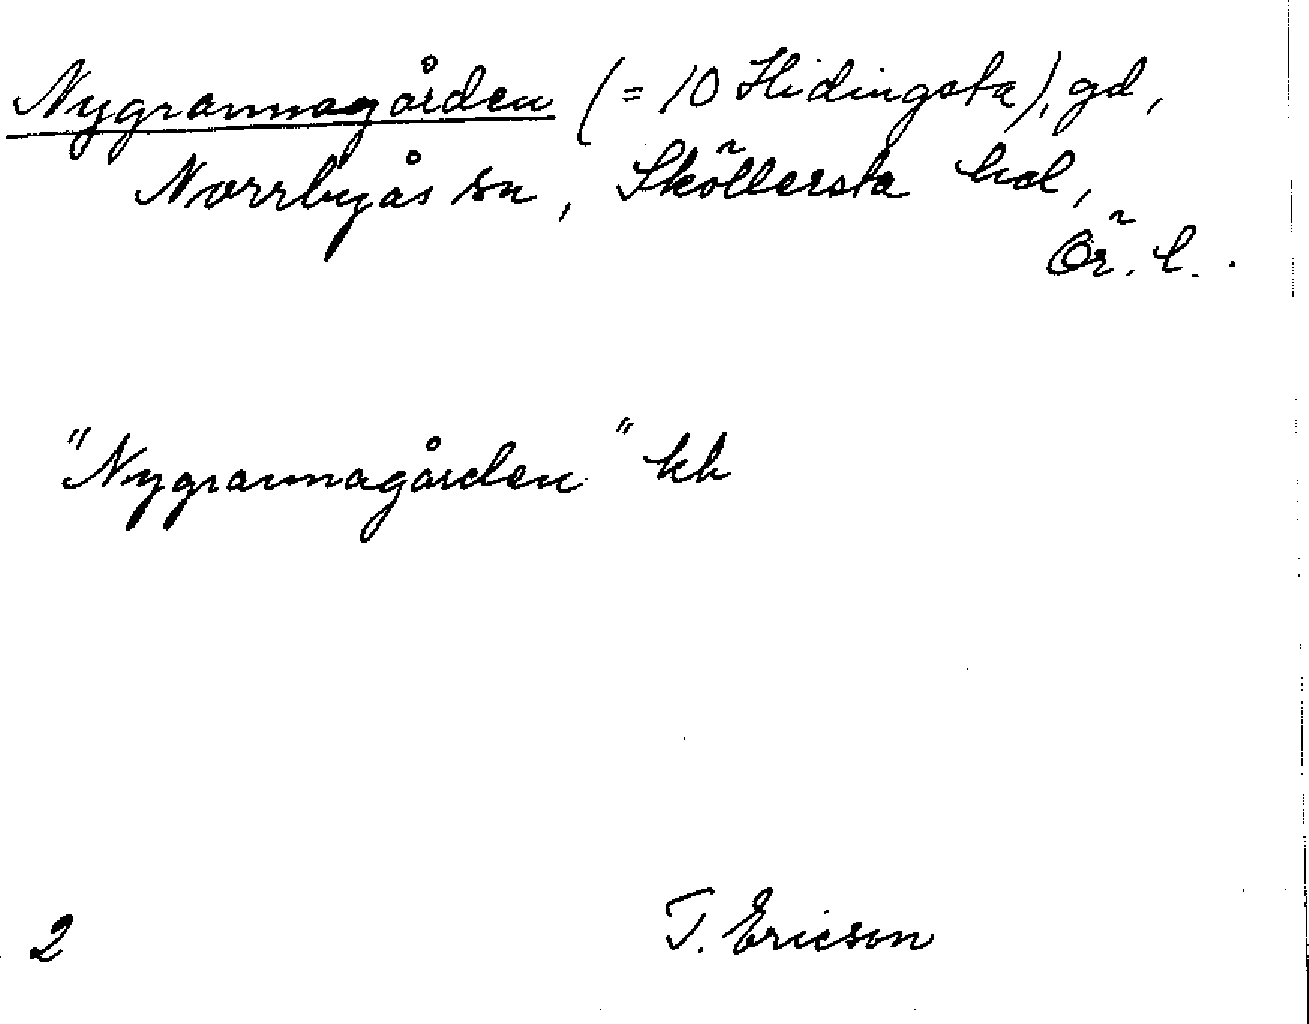 Nygrannagården (= 10 Hidingsta), gd,
Norrbyås sn, Sköllersta hd,
Ör. l.
"Nygrannagården" kh
2
T. Ericson